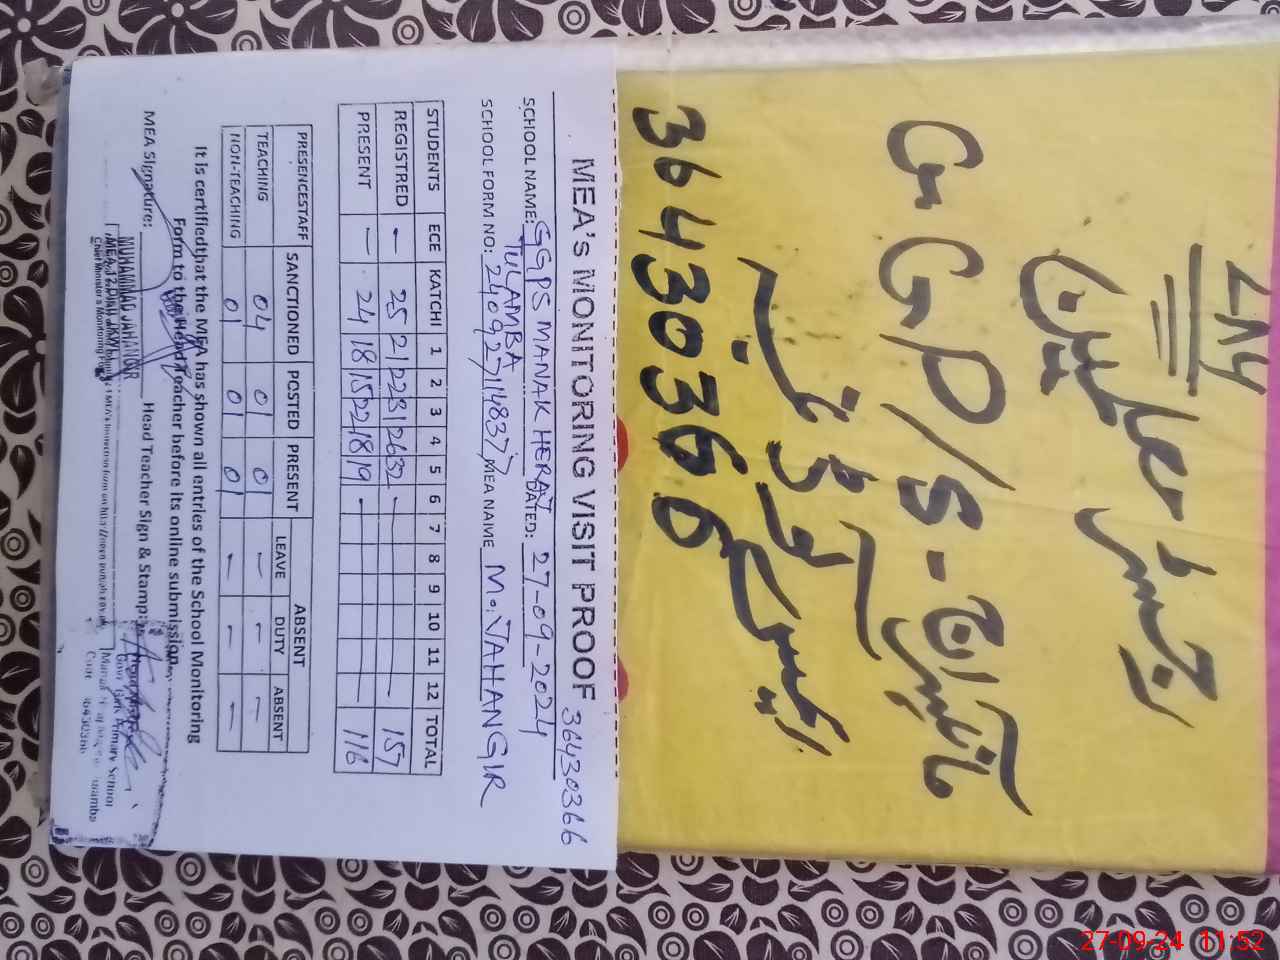 ۷۸۶
رجسٹر معائینہ
G G P/S - مانکہراج
ایمرجنسی کوڈ نمبر
36430366
MEA's MONITORING VISIT PROOF 36430366
SCHOOL NAME: GGPS MANAK HERAJ DATED: 27-09-2024
TULAMBA
SCHOOL FORM NO: MEA NAME M. JAHANGIR
STUDENTS ECE KATCHI 1 2 3 4 5 6 7 8 9 10 11 12 TOTAL
REGISTRED - 25 21 22 31 26 32 - 157
PRESENT - 24 18 15 22 18 19 - 116
PRESENCESTAFF SANCTIONED POSTED PRESENT ABSENT
LEAVE DUTY ABSENT
TEACHING 04 01 01 - - -
NON-TEACHING 01 01 01 - - -
It is certifiedthat the MEA has shown all entries of the School Monitoring
Form to the Head Teacher before its online submission
MEA Signature: Head Teacher Sign & Stamp:
MUHAMMAD JAHANGIR
Govt Girls Primary School
27-09-24 11:52